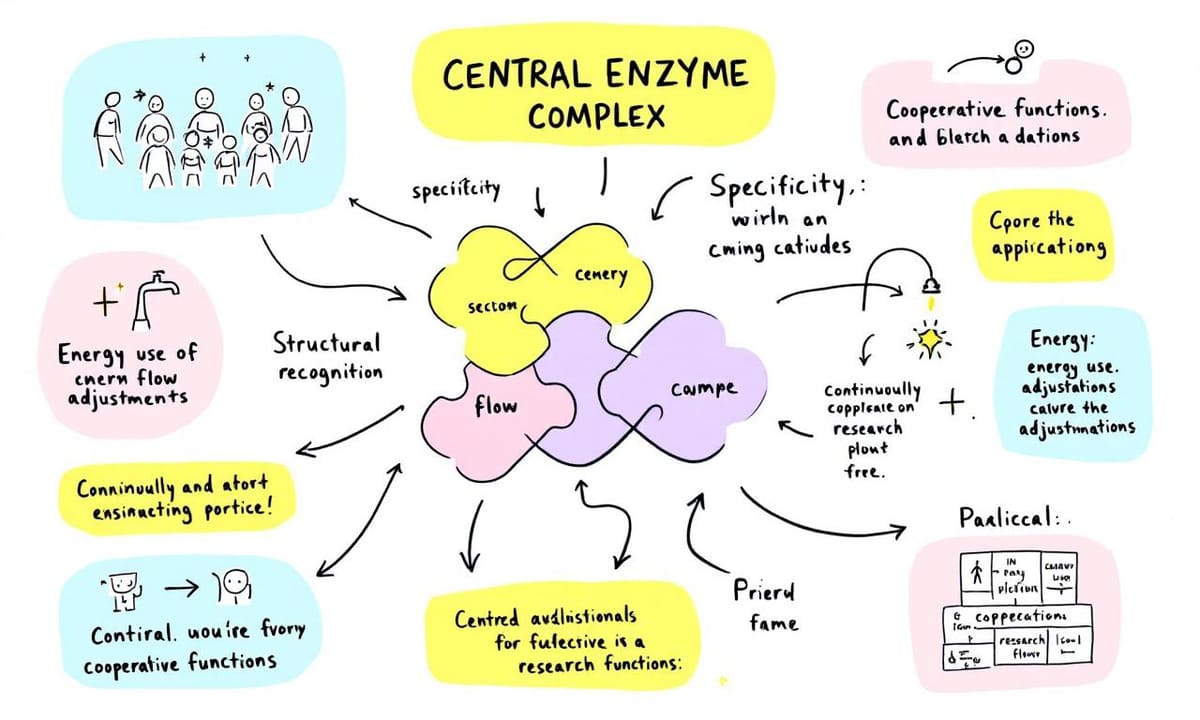 CENTRAL ENZYME
COMPLEX
Cooperrative functions.
and bletch a dations
speciificity
Specificity,:
wirln an
cming catiudes
Cpore the
applicationg
cemery
secton
Structural
recognition
Energy use of
cnern flow
adjustments
flow
Campe
Continuoully
on
research
plout
free.
Energy:
energy use.
adjustations
calvre the
adjustmnations
Conninuully and atort
ensinacting portice!
Paaliccal:.
IN
coppecations
research
Contiral. wou're fvory
cooperative functions
Centred
for fulective is a
research functions:
Prierd
fame